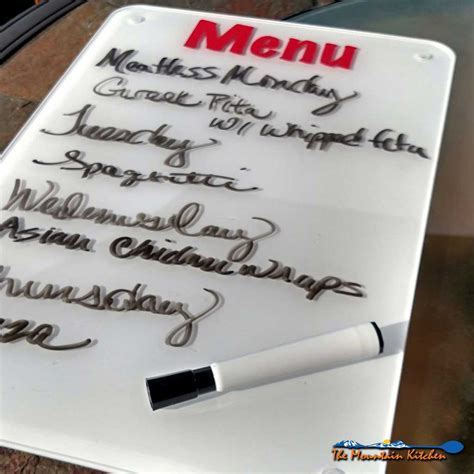 Menu
Meatless Monday
Greek Pita
w/ whipped feta
Tuesday
Spaghetti
Wednesday
Asian Chicken wraps
Thursday
The Mountain Kitchen